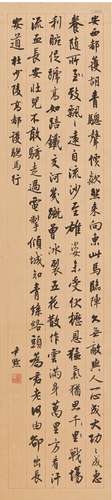 安西都護胡青驄聲價欻然來向東此馬臨陣久無敵與人一心成大功功成惠
養隨所致飄飄遠自流沙至雄姿未受伏櫪恩猛氣猶思千里戰場
利腕促蹄高如踣鐵交河幾蹴曾冰裂五花散作雲滿身萬里方看汗
流血長安壯兒不敢騎走過電掣傾城知青絲絡頭為君老何由卻出長
安道 杜少陵高都護驄馬行